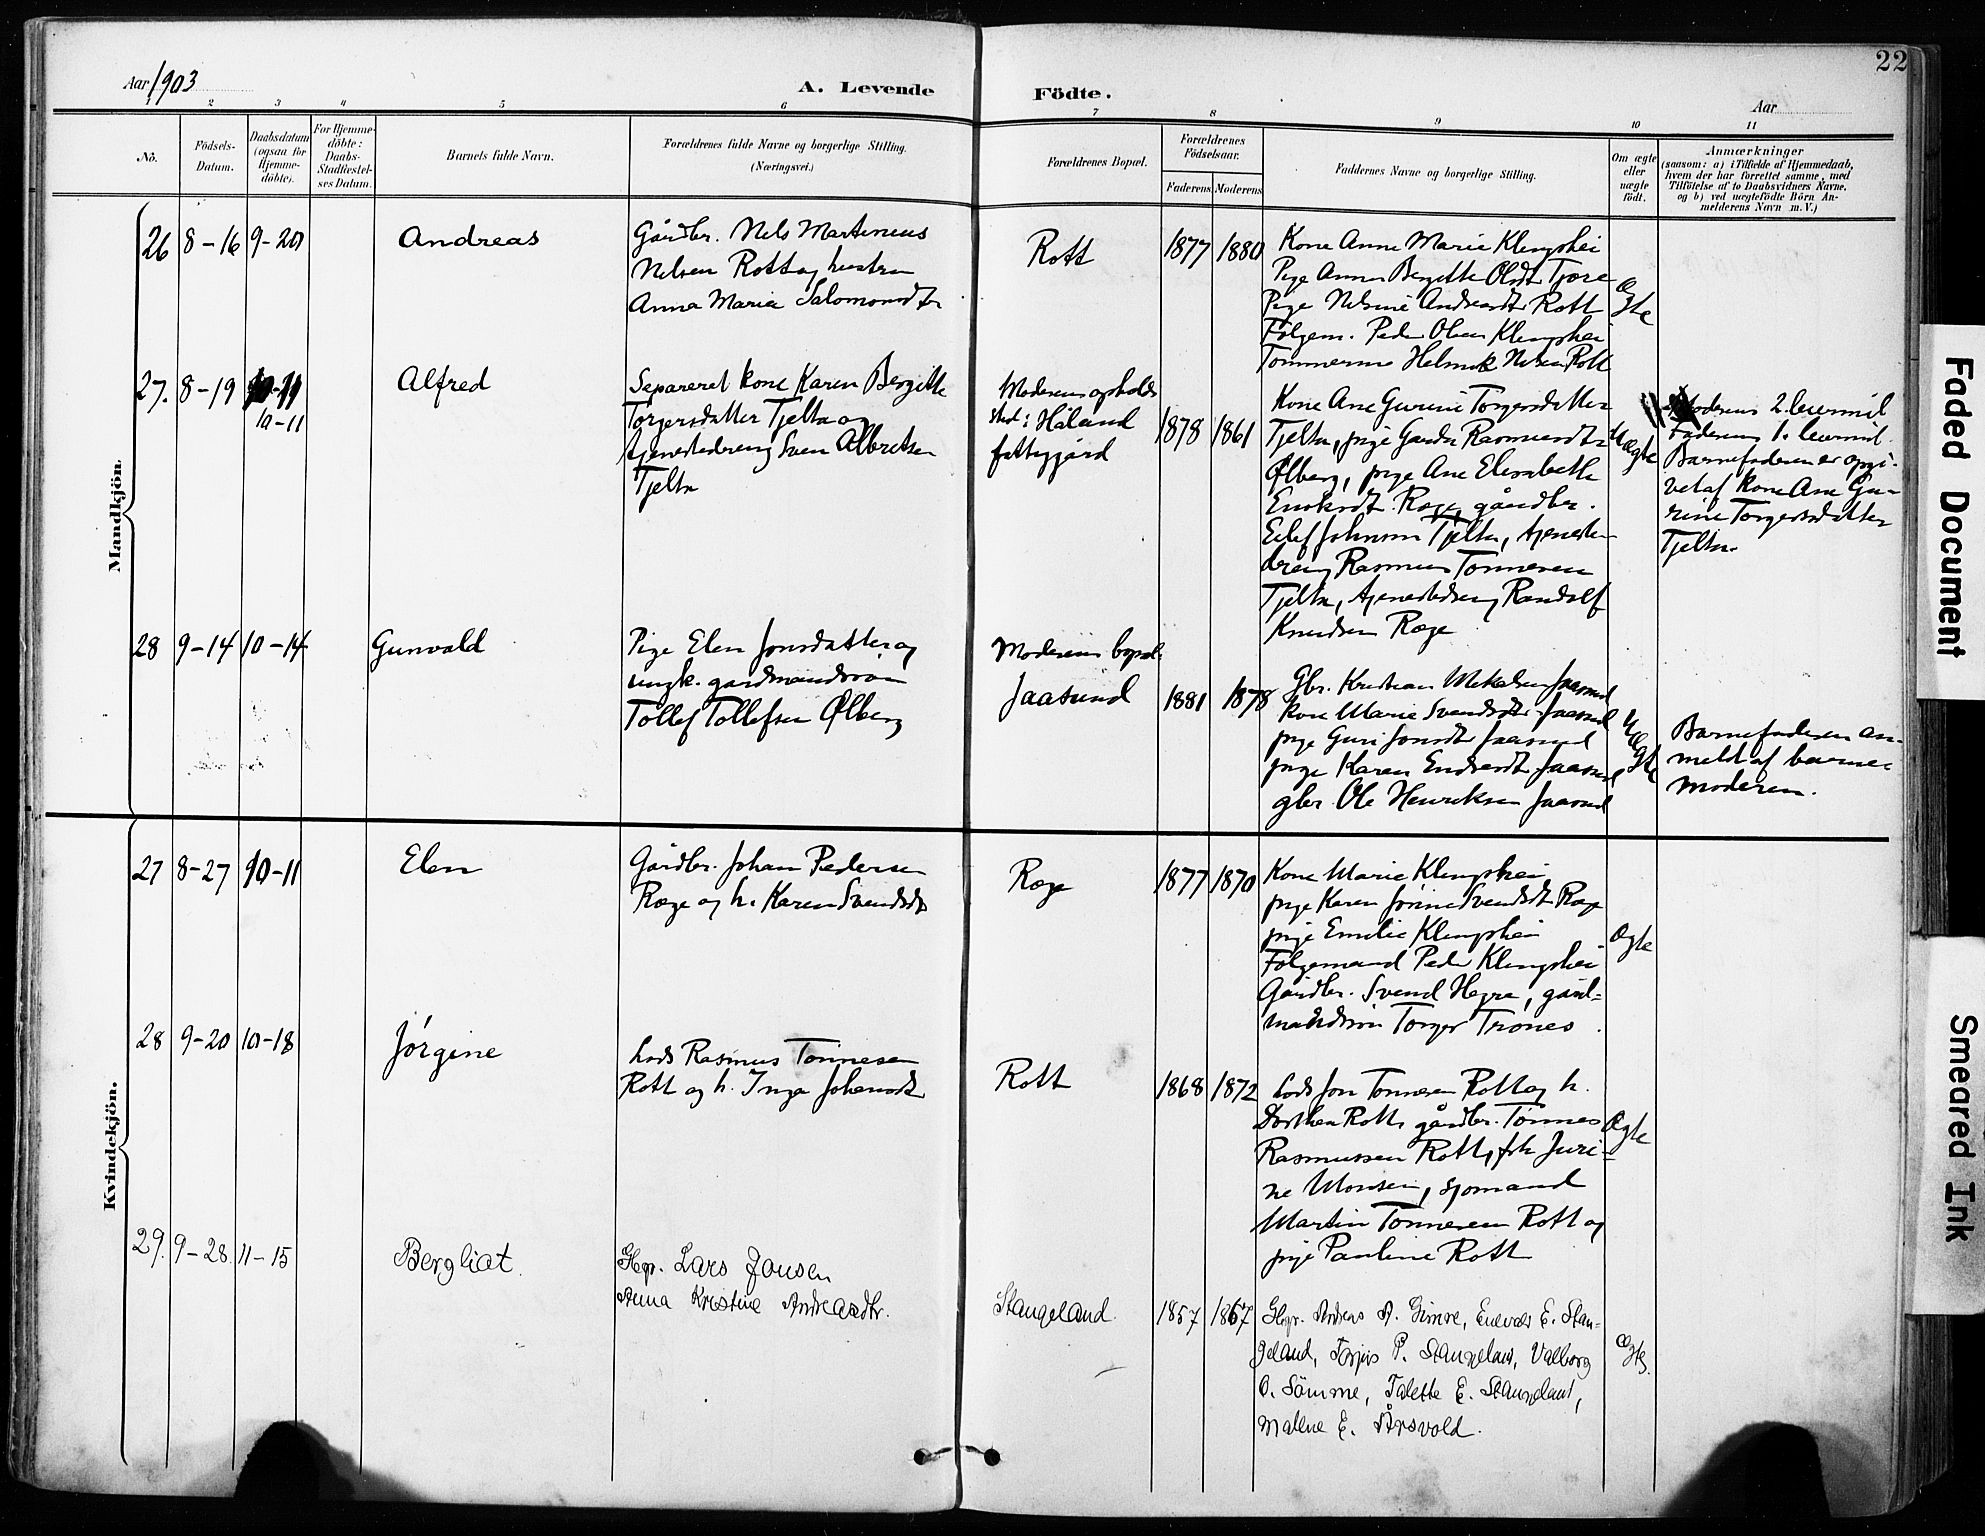 22
Aar 1903
A. Levende
Födte.
Aar
1 2 3 4 5 6 7 8 9 10 11
No.
Födsels-
Datum.
Daabsdatum
(ogsaa for
Hjemme-
döbte).
For Hjemme-
döbte:
Daabs-
Stadfæstel-
ses Datum.
Barnets fulde Navn.
Forældrenes fulde Navne og borgerlige Stilling.
(Næringsvei.)
Forældrenes Bopæl.
Forældrenes
Födselsaar.
Faderens Moderens
Faddernes Navne og borgerlige Stilling.
Om ægte
eller
uægte
födt.
Anmærkninger
(saasom: a) i Tilfælde af Hjemmedaab,
hvem der har forrettet samme, med
Tilföielse af to Daabsvidners Navne,
og b) ved uægtefödte Börn An-
melderens Navn m. V.)
Mandkjön.
26 8-16 9-20 Andreas
Gårdbr. Nels Martinius
Nelsen Rott og hustru
Anna Maria Salomonsdtr
Rott 1877 1880
Kone Anne Marie Klingshei
Pige Anna Bergitte Olsdt Tjore
Pige Nelsine Andreasdt Rott
Følgem. Peder Olsen Klingshei
Tømmerm Helmik Nelsen Rott
Ægte
27. 8-19 10-11
10-11
Alfred
Separeret kone Karen Bergitte
Torgersdatter Tjelta og
tjenestedreng Sven Albretsen
Tjelta
Moderens opholds
sted: Håland
fattiggård
1878 1861
Kone Ane Gurine Torgersdatter
Tjelta, pige Rasmusdtr
Ølberg, pige Ane Elisabeth
Ræge, gårdbr.
Eilef Johnson Tjelta, tjeneste
dreng Rasmus Tønnesen
Tjelta, tjenestedreng Randolf
Knudsen Ræge
Uægte
Moderens 2. leiermål
Faderens 1. leiermål.
Barnefaderen er opgi-
vet af kone Ane Gu-
rine Torgersdatter
Tjelta.
28 9-14 10-14 Gunvald
Pige Elen Jonsdatter og
ungk. gardmandssøn
Tollef Tollefsen Ølberg
Moderens bopæl:
Jaasund 1881 1878
Gbr. Kristian Mikalsen Jaasund
kone Marie Svendsdtr Jaasund
pige Guri Jonsdt Jaasund
pige Karen Endresdt Jaasund
gbr. Ole Henriksen Jaasund
Uægte
Barnefaderen an-
meldt af barne-
moderen.
Kvindekjön.
27 8-27 10-11 Elen
Gårdbr. Johan Pedersen
Ræge og h. Karen Svendsdt
Ræge 1877 1870
Kone Marie Klingshei
pige Karen Jørine Svendsdt Ræge
pige Emilie Klingshei
Følgemand Peder Klingshei
Gårdbr. Svend Hegre, gård-
mandssøn Torger Trones.
Ægte
28 9-20 10-18 Jørgine
Lods Rasmus Tønnesen
Rott og h. Inga Johansdt
Rott 1868 1872
Lods Jon Tønnesen Rott og h.
Dorthea Rott, gårdbr. Tønnes
Rasmussen Rott, Juri-
ne Monsen, sjømand
Martin Tønnesen Rott og
pige Pauline Rott
Ægte
29. 9-28. 11-15 Bergliot.
Gbr. Lars Jonsen
Anna Kristine Andreasdtr.
Stangeland. 1857 1867
Gbr. Andreas A. Gimre, E. Stan-
geland, Torjus P. Stangeland, Valborg
O. Sömme, Talette E. Stangeland,
Malene E. Årsvold.
ægte.
Faded Document
Smeared Ink